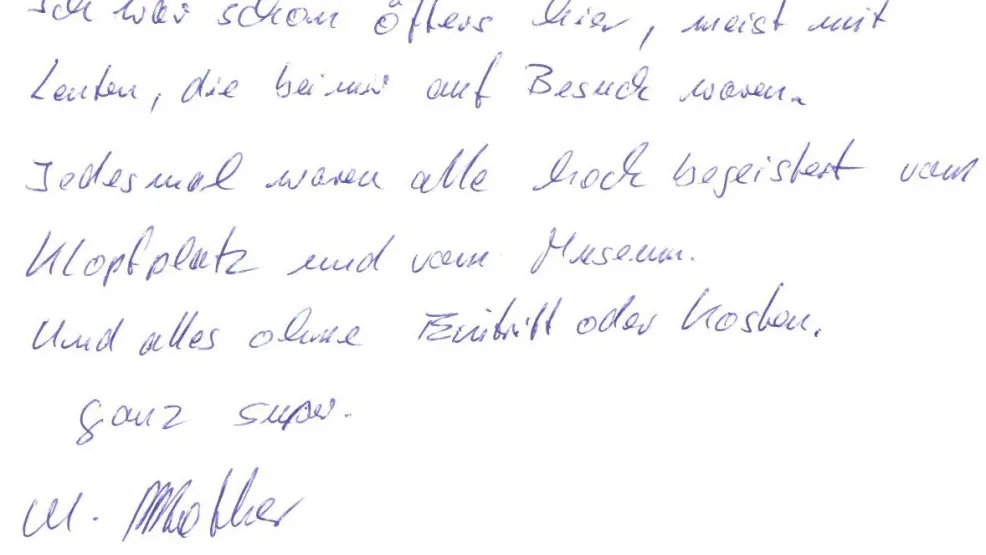 Ich war schon öfters hier, meist mit
Leuten, die bei mir auf Besuch waren.
Jedesmal waren alle hoch begeistert vom
Klopfplatz und vom Museum.
Und alles ohne Eintritt oder Kosten.
ganz super.
M.